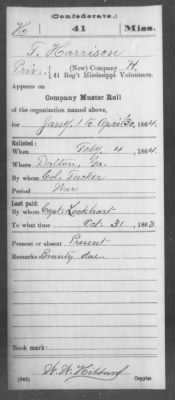 (Confederate.)
H 41 Miss.
T. Harrison
Priv., (New) Company H,
41 Reg't Mississippi Volunteers.
Appears on
Company Muster Roll
of the organization named above,
for Jany. 1 to April 30, 1864.
Enlisted:
When Feby 4, 1864.
Where Dalton, Ga.
By whom Col. Tucker
Period War
Last paid:
By whom Capt. Lockhart
To what time Oct. 31, 1863.
Present or absent Present
Remarks: Bounty due.
Book mark:
(642) Copyist.